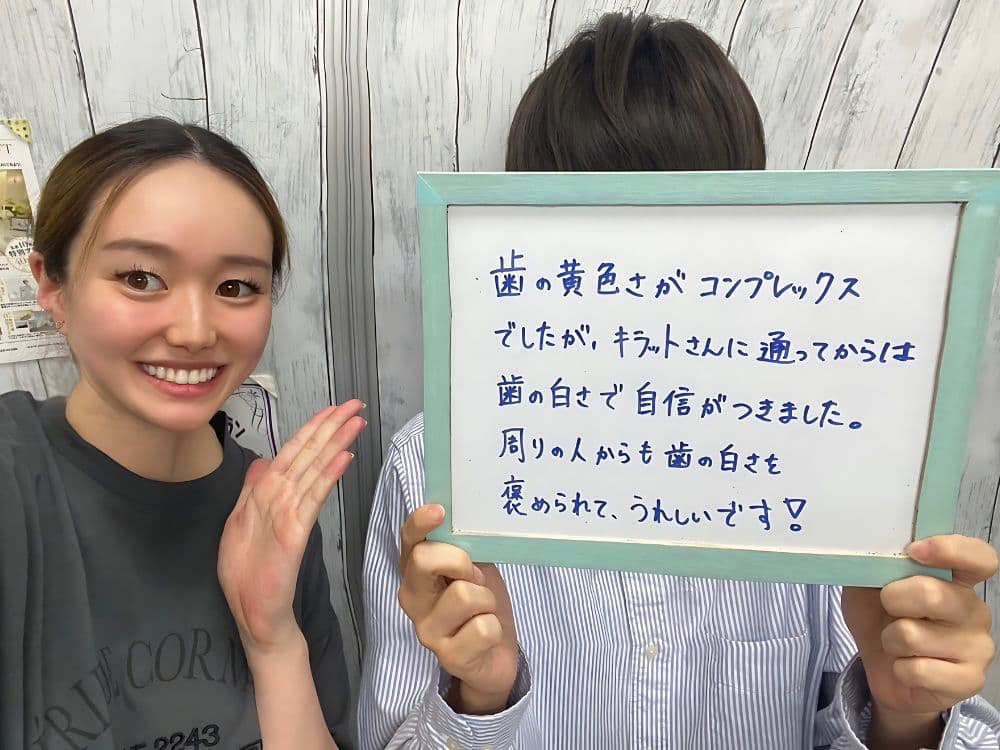 歯の黄色さがコンプレックス
でしたが、キラットさんに通ってからは
歯の白さで自信がつきました。
周りの人からも歯の白さを
褒められて、うれしいです!
RIDE CORN
2243
ラン